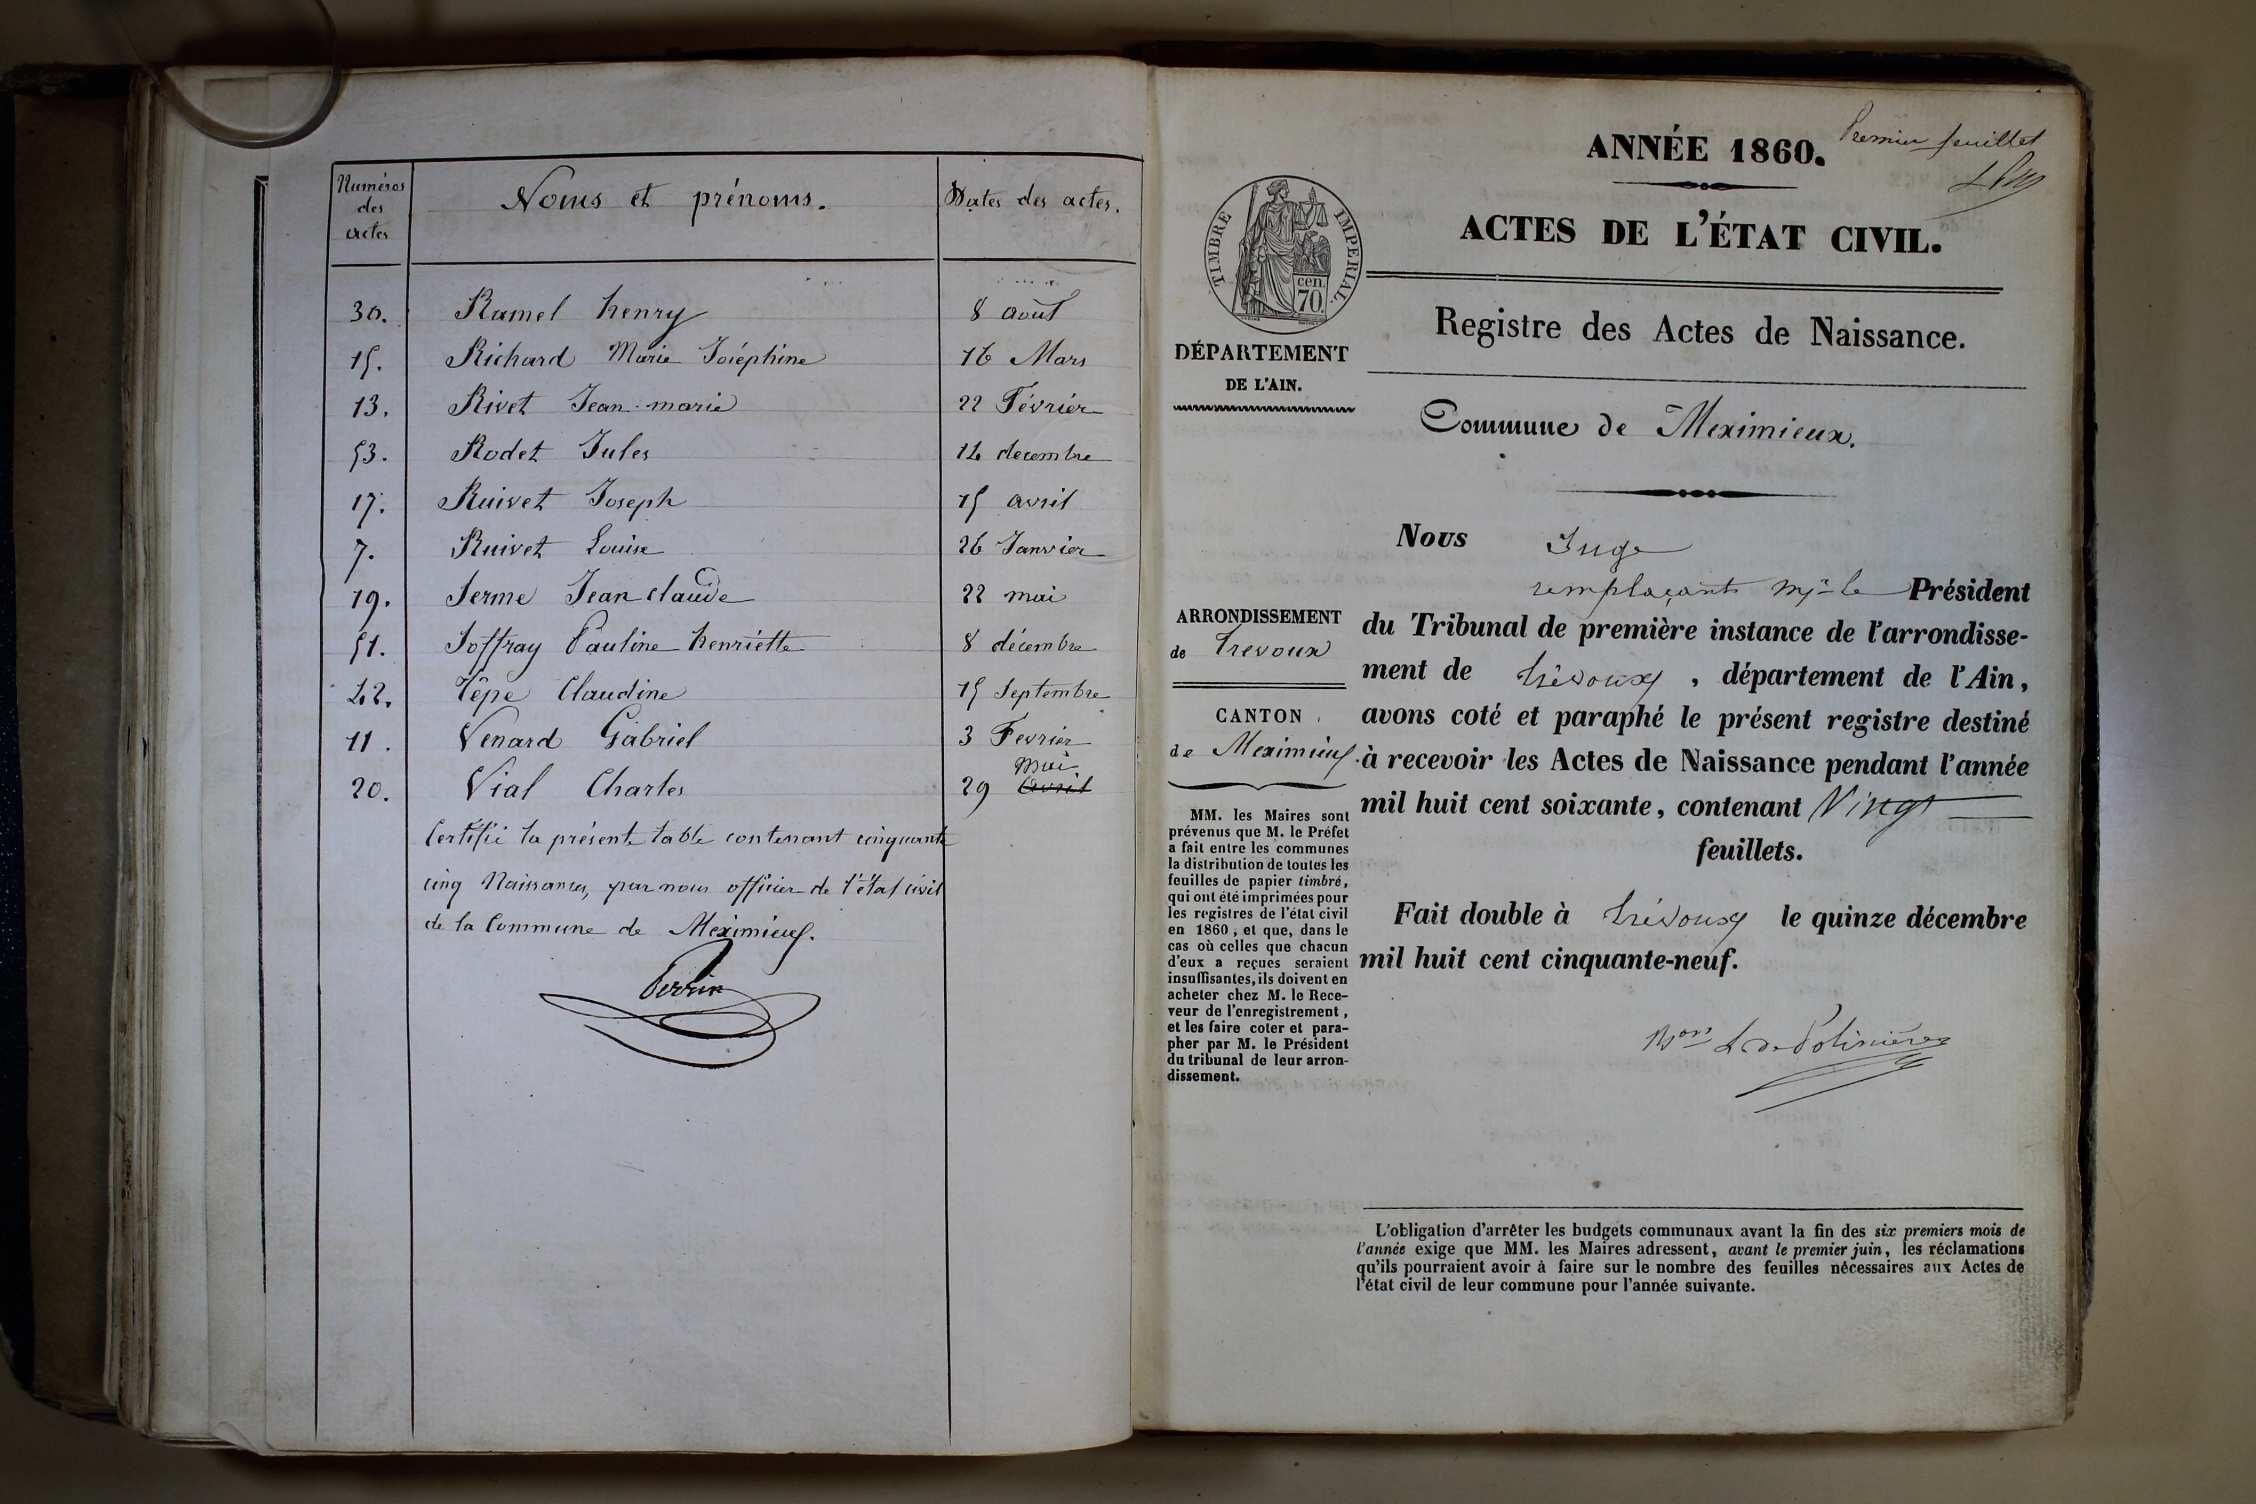 Numéros des actes
Noms et prénoms.
Dates des actes.
30. Ramel henry 8 août
15. Richard Marie Joséphine 16 Mars
13. Rivet Jean-marie 22 Février
53. Rodet Jules 14 decembre
17. Ruivet Joseph 15 avril
7. Ruivet Louise 26 Janvier
19. Serme Jean claude 22 mai
51. Soffray Pauline henriette 8 décembre
42. Têpe Claudine 15 Septembre
11. Venard Gabriel 3 Fevrier
mai
20. Vial Charles 29 avril
Certifié la présente table contenant cinquante
cinq Naissances, par nous officier de l'état civil
de la Commune de Meximieux.
Perrin
Premier feuillet
ANNÉE 1860.
ACTES DE L'ÉTAT CIVIL.
TIMBRE IMPERIAL
cen.
70.
Registre des Actes de Naissance.
DÉPARTEMENT
DE L'AIN.
Commune de Meximieux.
Nous Juge
remplaçant Mr le Président
du Tribunal de première instance de l'arrondisse-
ment de Trévoux, département de l'Ain,
avons coté et paraphé le présent registre destiné
à recevoir les Actes de Naissance pendant l'année
mil huit cent soixante, contenant Vingt
feuillets.
Fait double à Trévoux le quinze décembre
mil huit cent cinquante-neuf.
Bon L de Polinière
ARRONDISSEMENT
de Trevoux
CANTON
de Meximieux
MM. les Maires sont
prévenus que M. le Préfet
a fait entre les communes
la distribution de toutes les
feuilles de papier timbré,
qui ont été imprimées pour
les registres de l'état civil
en 1860, et que, dans le
cas où celles que chacun
d'eux a reçues seraient
insuffisantes, ils doivent en
acheter chez M. le Rece-
veur de l'enregistrement,
et les faire coter et para-
pher par M. le Président
du tribunal de leur arron-
dissement.
L'obligation d'arrêter les budgets communaux avant la fin des six premiers mois de
l'année exige que MM. les Maires adressent, avant le premier juin, les réclamations
qu'ils pourraient avoir à faire sur le nombre des feuilles nécessaires aux Actes de
l'état civil de leur commune pour l'année suivante.